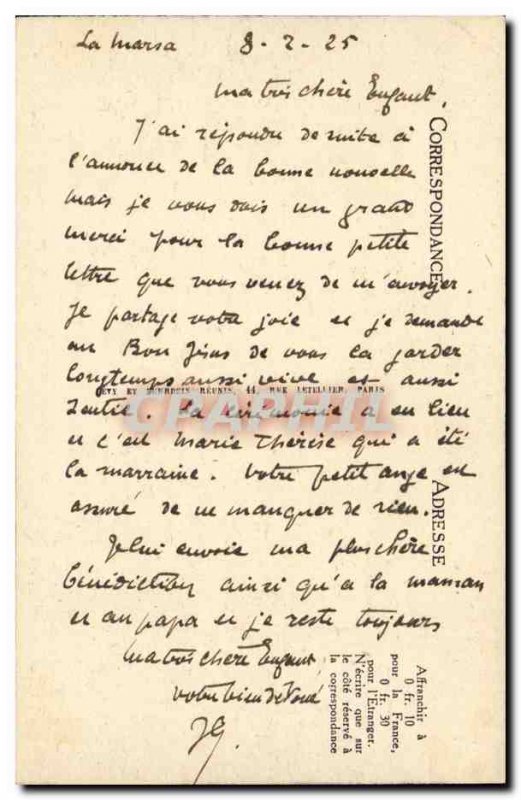 La Marsa 8-2-25
Ma très chère Enfant,
J'ai répondu de suite à
l'annonce de la bonne nouvelle
mais je vous dois un grand
merci pour la bonne petite
lettre que vous venez de m'envoyer.
Je partage votre joie et je demande
au Bon Jésus de vous la garder
longtemps aussi vive et aussi
La cérémonie a eu lieu
et c'est Marie Thérèse qui a été
la marraine. Votre petit ange est
assuré de ne manquer de rien.
Je lui envoie ma plus chère
bénédiction ainsi qu'à la maman
et au papa et je reste toujours
Ma très chère Enfant
votre bien dévoué
CORRESPONDANCE
ADRESSE
LÉVY ET NEURDEIN RÉUNIS, 44, RUE LETELLIER, PARIS
CPAPHIL
Affranchir à
0 fr. 10
pour la France,
0 fr. 30
pour l'Étranger.
N'écrire que sur
le côté réservé à
la correspondance